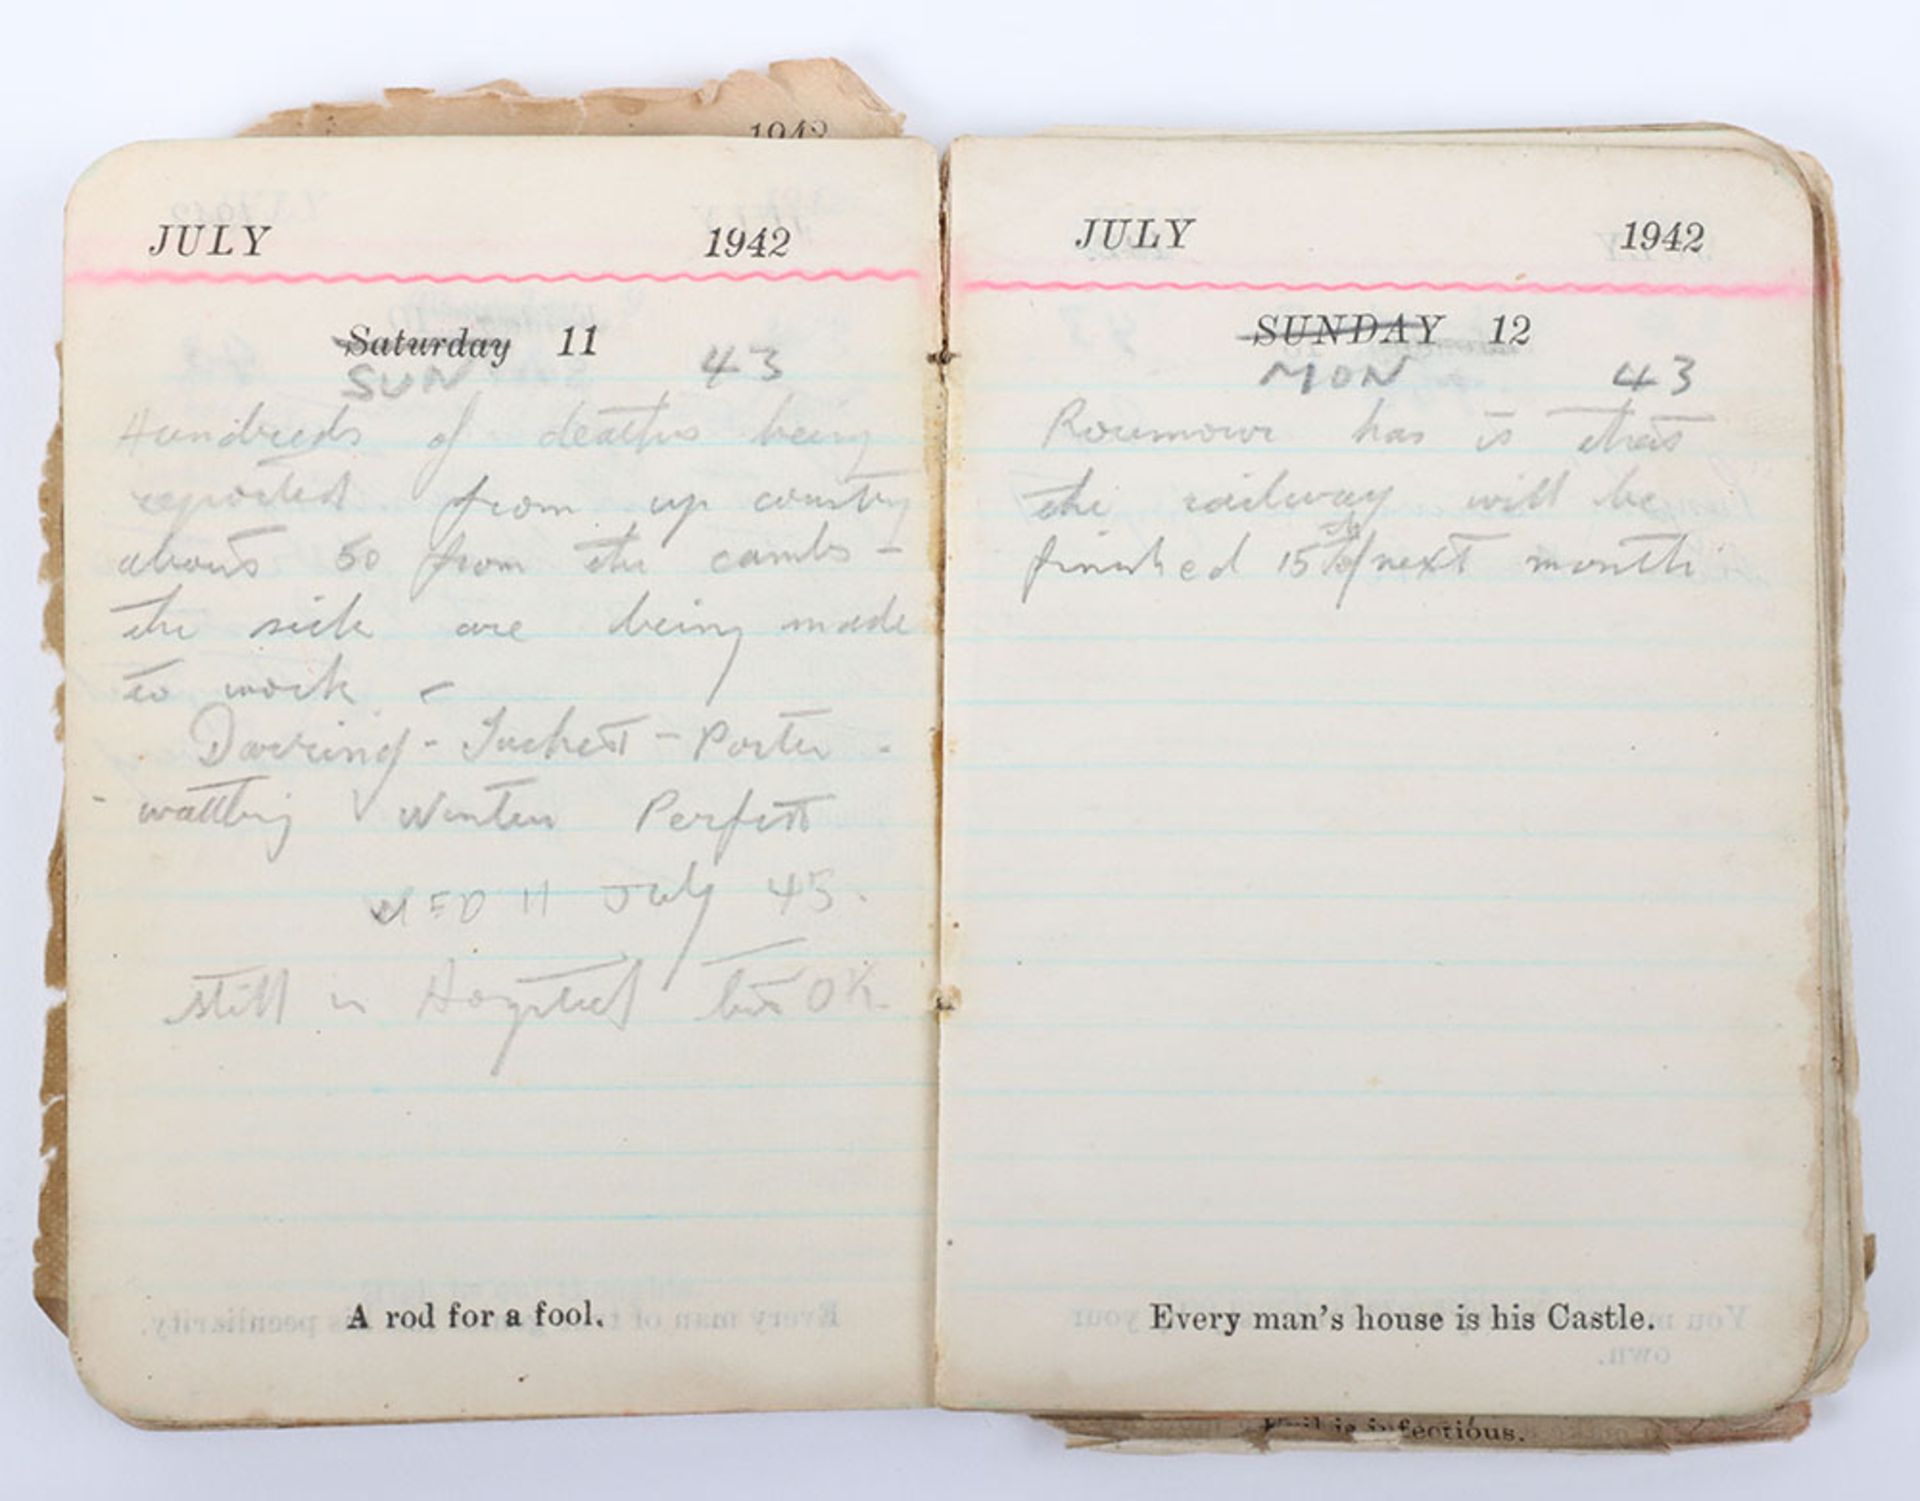 1942
JULY 1942
Saturday 11
SUN 43
Hundreds of deaths being
reported from up country
about 50 from the cambs -
the sick are being made
to work -
- Tuckett - Porter -
- Winter Perfett
WED 11 July 45.
still in Hospital but OK.
A rod for a fool.
JULY 1942
SUNDAY 12
MON 43
Roumour has is that
the railway will be
finished 15th of next month
Every man's house is his Castle.
is infectious.